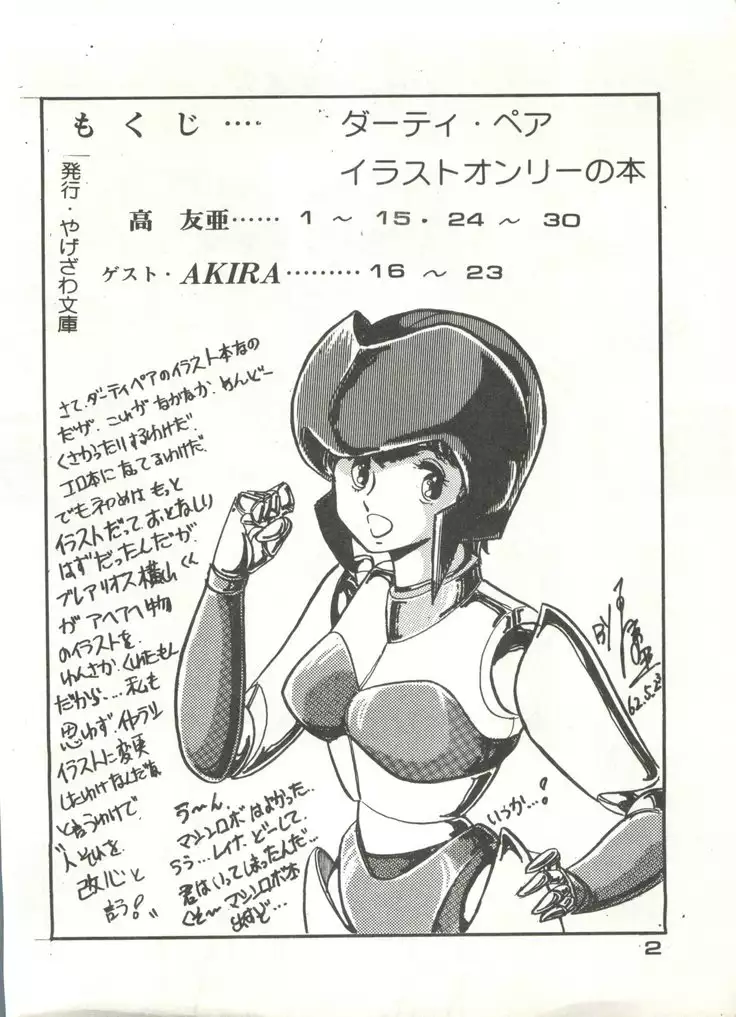 もくじ‥‥
ダーティ・ペア
イラストオンリーの本
発行・やげざわ文庫
高 友亜‥‥‥ 1 ～ 15・24 ～ 30
ゲスト・AKIRA‥‥‥‥‥16 ～ 23
さて、ダーティペアのイラスト本なの
だが、これが なかなか、めんどー
くさかったりするわけだ
エロ本になってるわけだ
でもネ
はもっと
イラストだって おとなしい
はずだったんだが
ブレアリオス横山くん
がアヘアヘ物
のイラストを
わんさか、くれたもん
だから‥‥私も
思わず、イヤラシ
イラストに変更
したわけなんだな
と言うわけで
"人それを
改心と
言う!"
う～ん、
マシンロボはよかった‥
うう‥レイナ、どーして、
君はいってしまったんだ‥
くそ～ マシンロボ本
出すど‥
いつか‥!
62.5.23
2